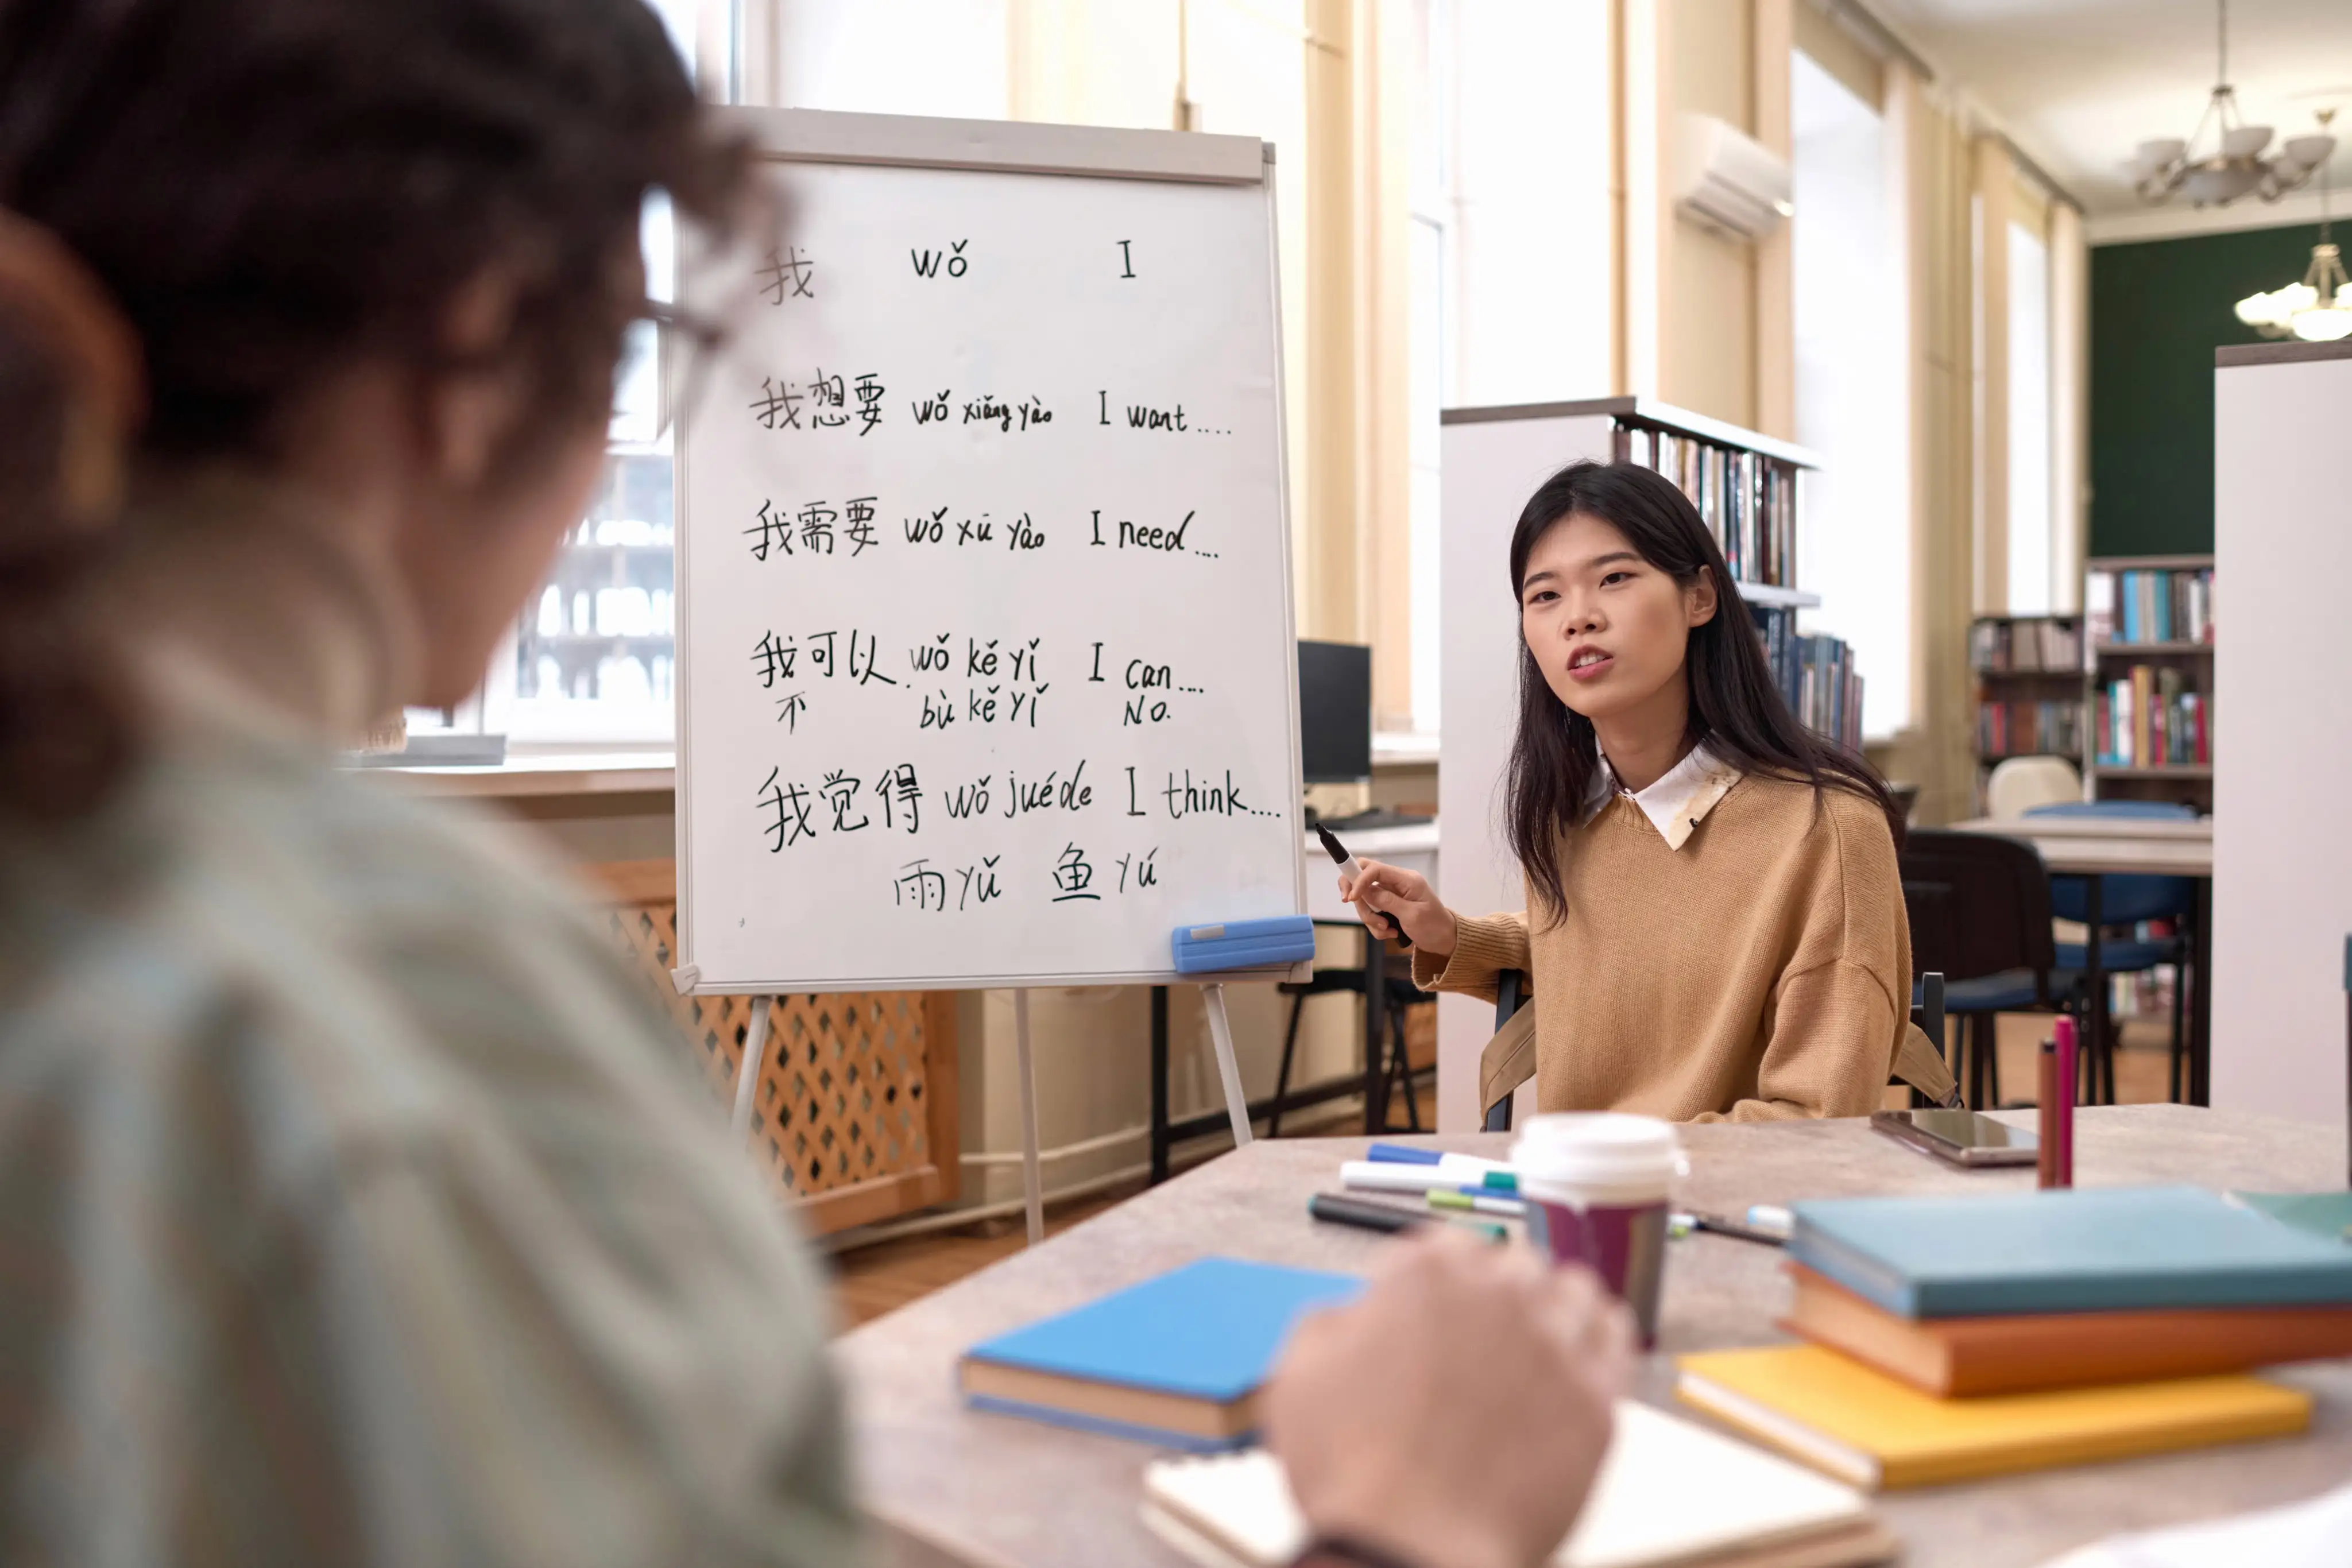 我 wǒ I
我想要 wǒ xiǎng yào I want....
我需要 wǒ xū yào I need....
我可以 wǒ kě yǐ I can....
不 bù kě yǐ No.
我觉得 wǒ juéde I think....
雨 yǔ 鱼 yú